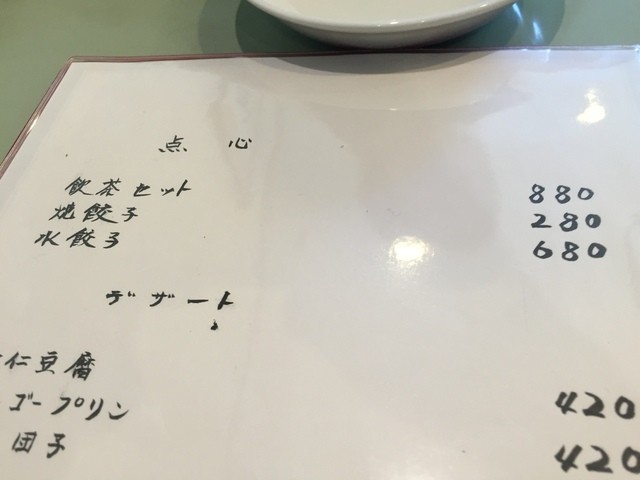 点心
飲茶セット 880
焼餃子 280
水餃子 680
デザート
仁豆腐
ゴープリン 420
団子 420